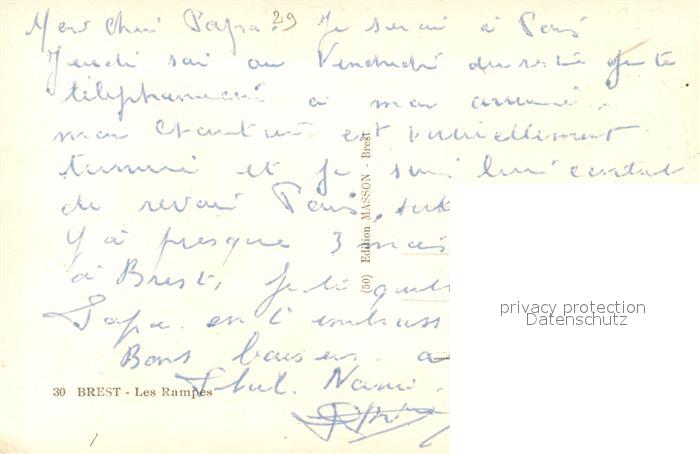 Mon Cheri Papa. 29 Je serai à Paris
Jeudi soir ou Vendredi du reste je te
téléphonerai à mon arrivée.
mon chantier est virtuellement
terminé et je suis bien content
de revoir Paris,
Y a presque 3 mois
à Brest, Je te quitte
Papa en t'embrass
Bons baisers a
30 BREST - Les Rampes
(50) Edition MASSON - Brest
privacy protection
Datenschutz